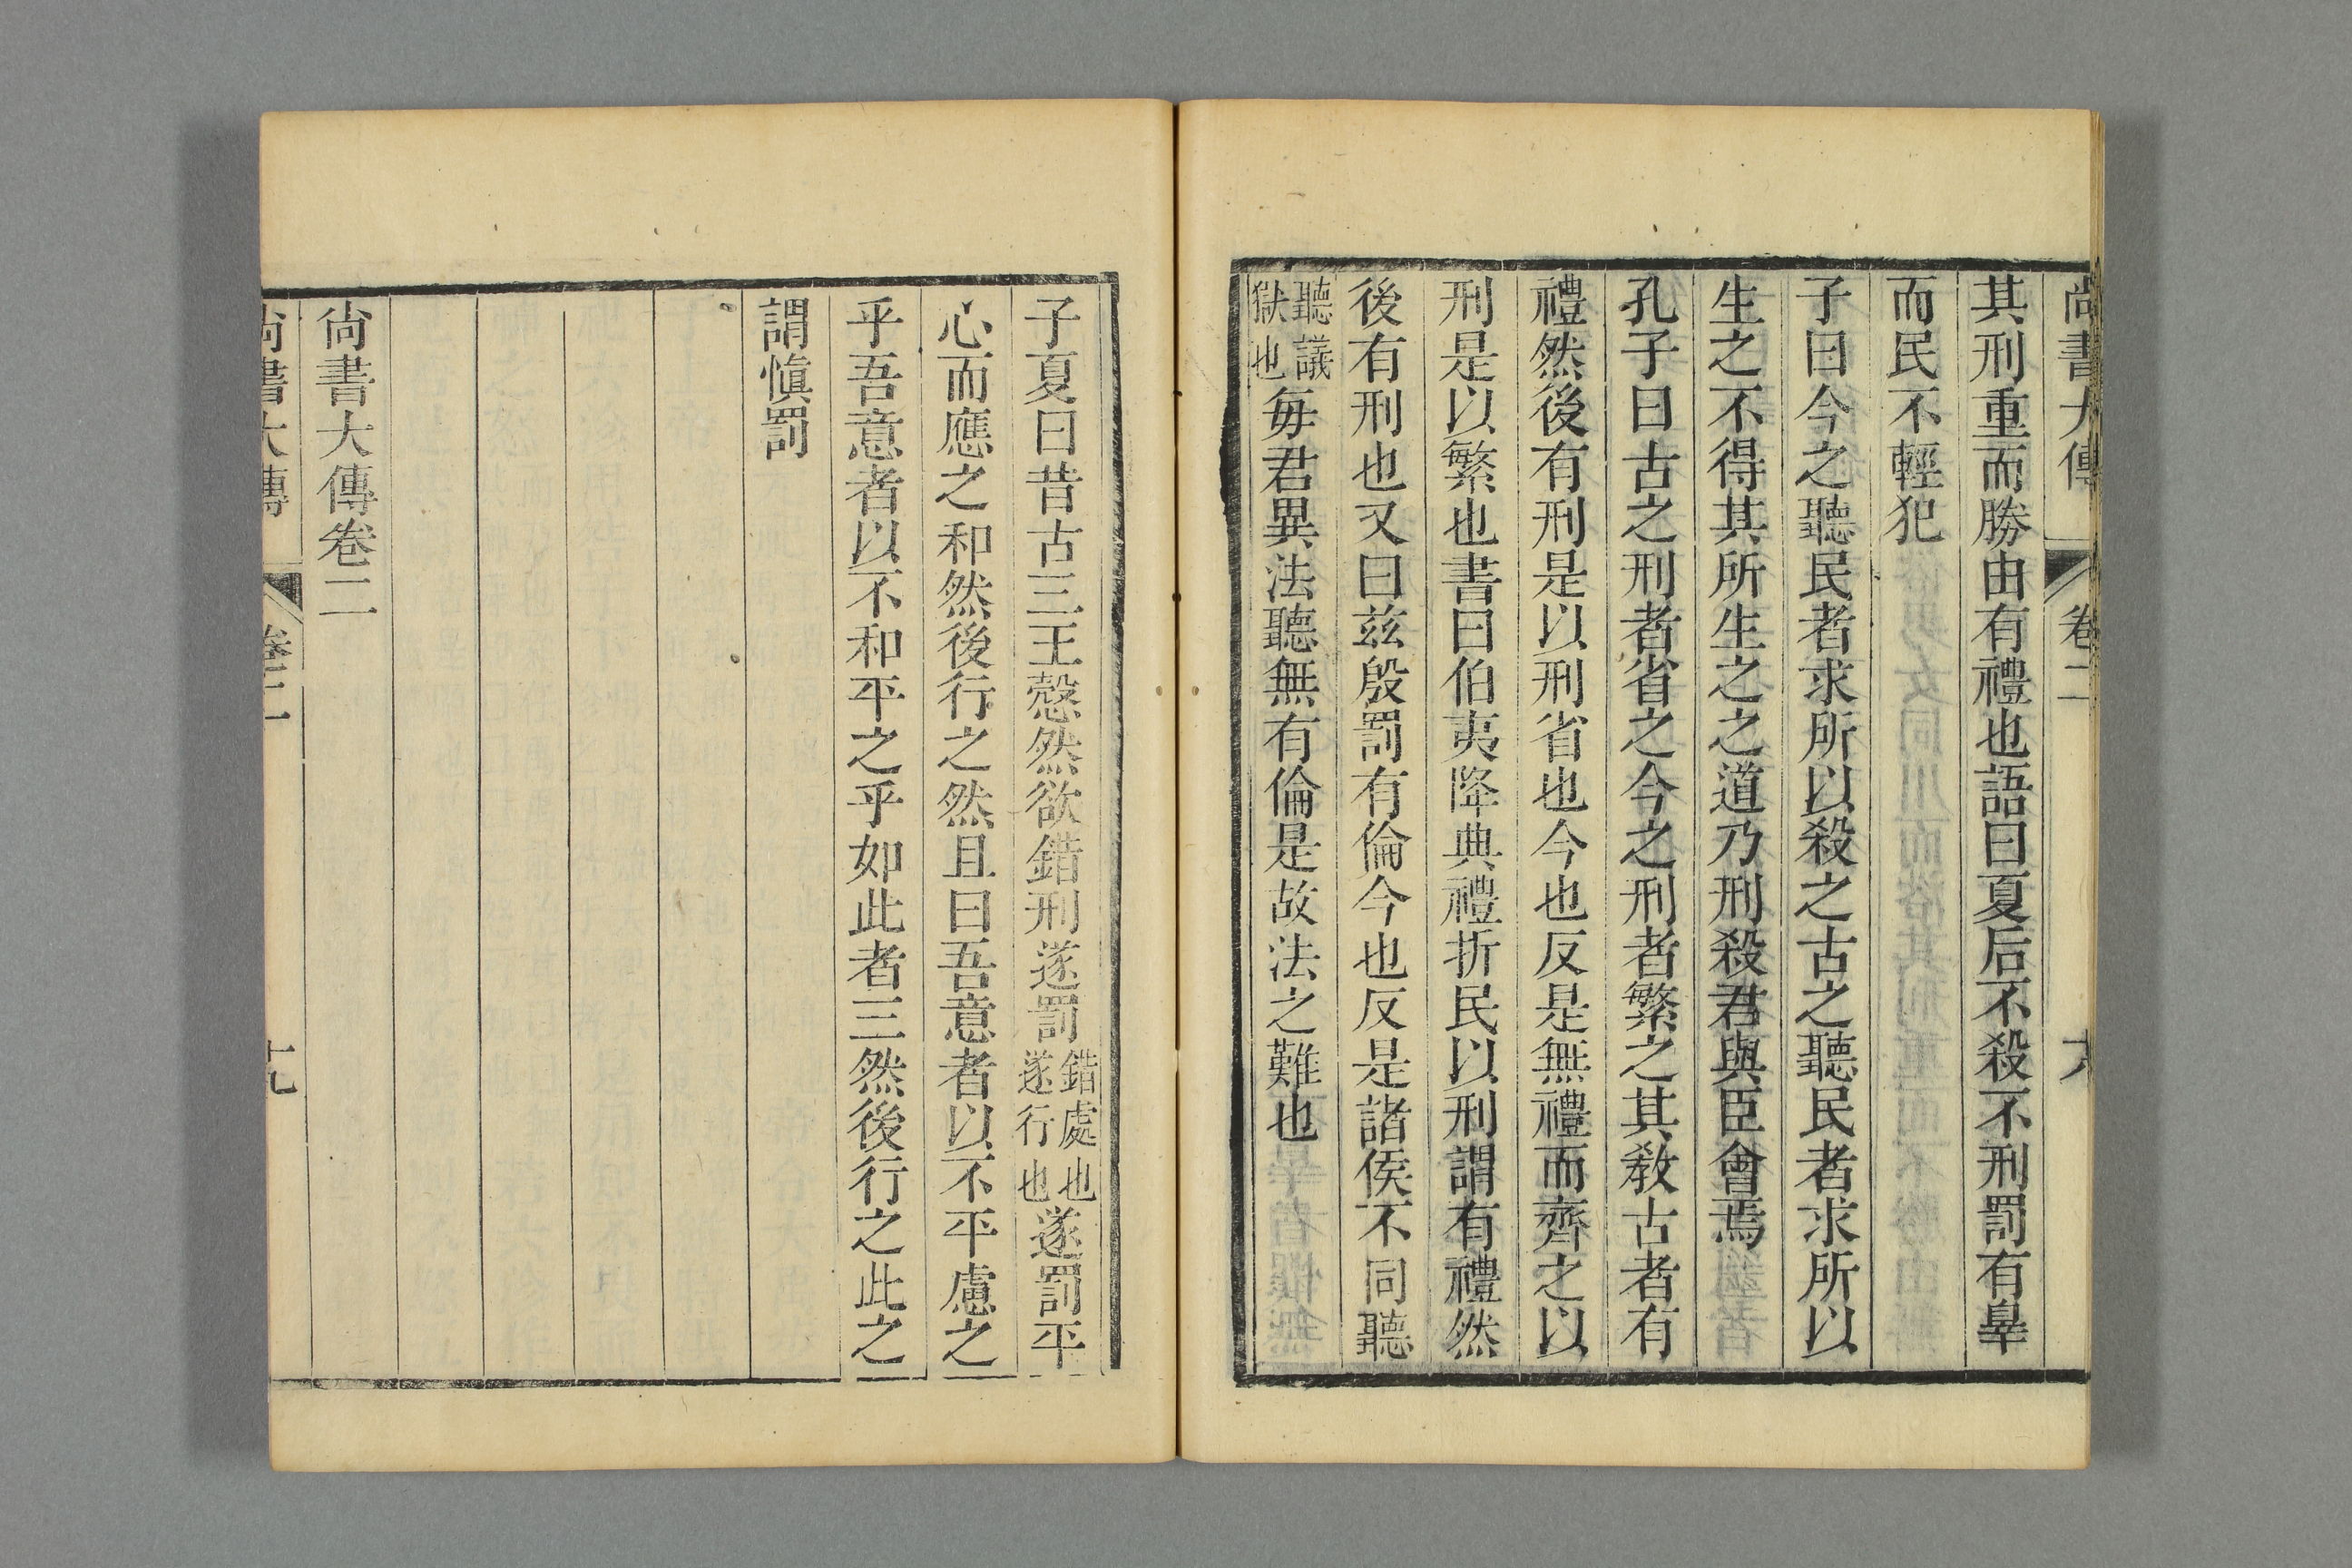 尚書大傳 卷二
其刑重而勝由有禮也語曰夏后不殺不刑罰有辠
而民不輕犯
子曰今之聽民者求所以殺之古之聽民者求所以
生之不得其所生之之道乃刑殺君與臣會焉
孔子曰古之刑者省之今之刑者繁之其敎古者有
禮然後有刑是以刑省也今也反是無禮而齊之以
刑是以繁也書曰伯夷降典禮折民以刑謂有禮然
後有刑也又曰茲殷罰有倫今也反是諸侯不同聽
聽議獄也每君異法聽無有倫是故法之難也
子夏曰昔古三王愨然欲錯刑遂罰錯處也遂行也遂罰平
心而應之和然後行之然且曰吾意者以不平慮之
乎吾意者以不和平之乎如此者三然後行之此之
謂愼罰
尙書大傳卷二
尚書大傳 卷二 十九